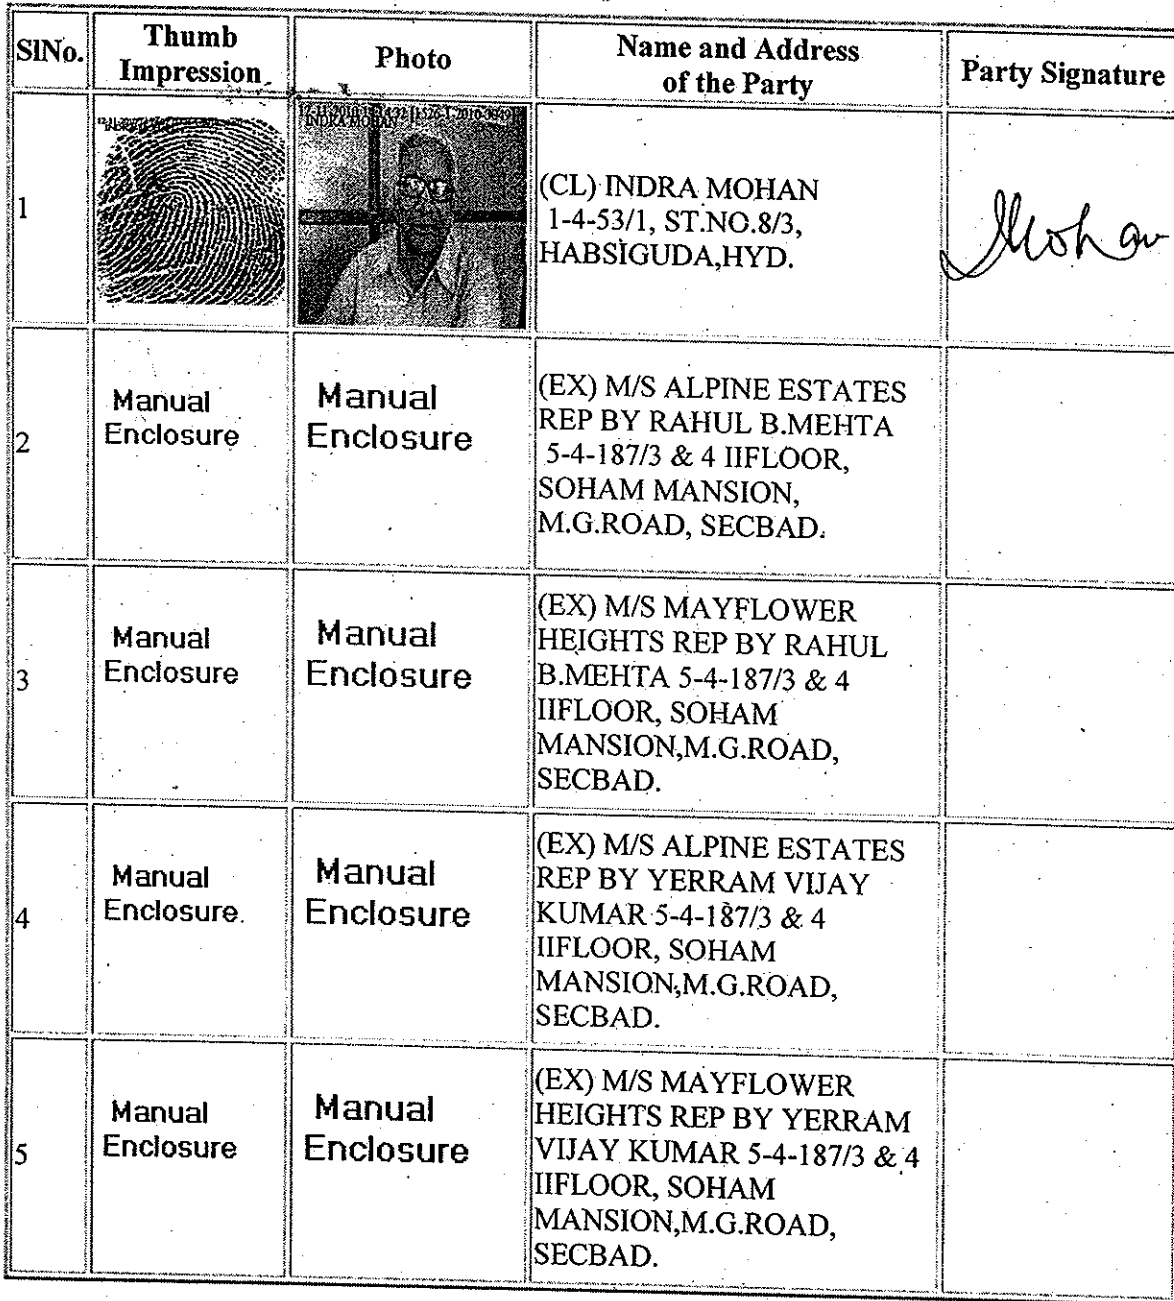 SlNo.
Thumb
Impression
Photo
Name and Address
of the Party
Party Signature
1
INDRA MOHAN
(CL) INDRA MOHAN
1-4-53/1, ST.NO.8/3,
HABSIGUDA,HYD.
Mohan
2
Manual
Enclosure
Manual
Enclosure
(EX) M/S ALPINE ESTATES
REP BY RAHUL B.MEHTA
5-4-187/3 & 4 IIFLOOR,
SOHAM MANSION,
M.G.ROAD, SECBAD.
3
Manual
Enclosure
Manual
Enclosure
(EX) M/S MAYFLOWER
HEIGHTS REP BY RAHUL
B.MEHTA 5-4-187/3 & 4
IIFLOOR, SOHAM
MANSION,M.G.ROAD,
SECBAD.
4
Manual
Enclosure
Manual
Enclosure
(EX) M/S ALPINE ESTATES
REP BY YERRAM VIJAY
KUMAR 5-4-187/3 & 4
IIFLOOR, SOHAM
MANSION,M.G.ROAD,
SECBAD.
5
Manual
Enclosure
Manual
Enclosure
(EX) M/S MAYFLOWER
HEIGHTS REP BY YERRAM
VIJAY KUMAR 5-4-187/3 & 4
IIFLOOR, SOHAM
MANSION,M.G.ROAD,
SECBAD.